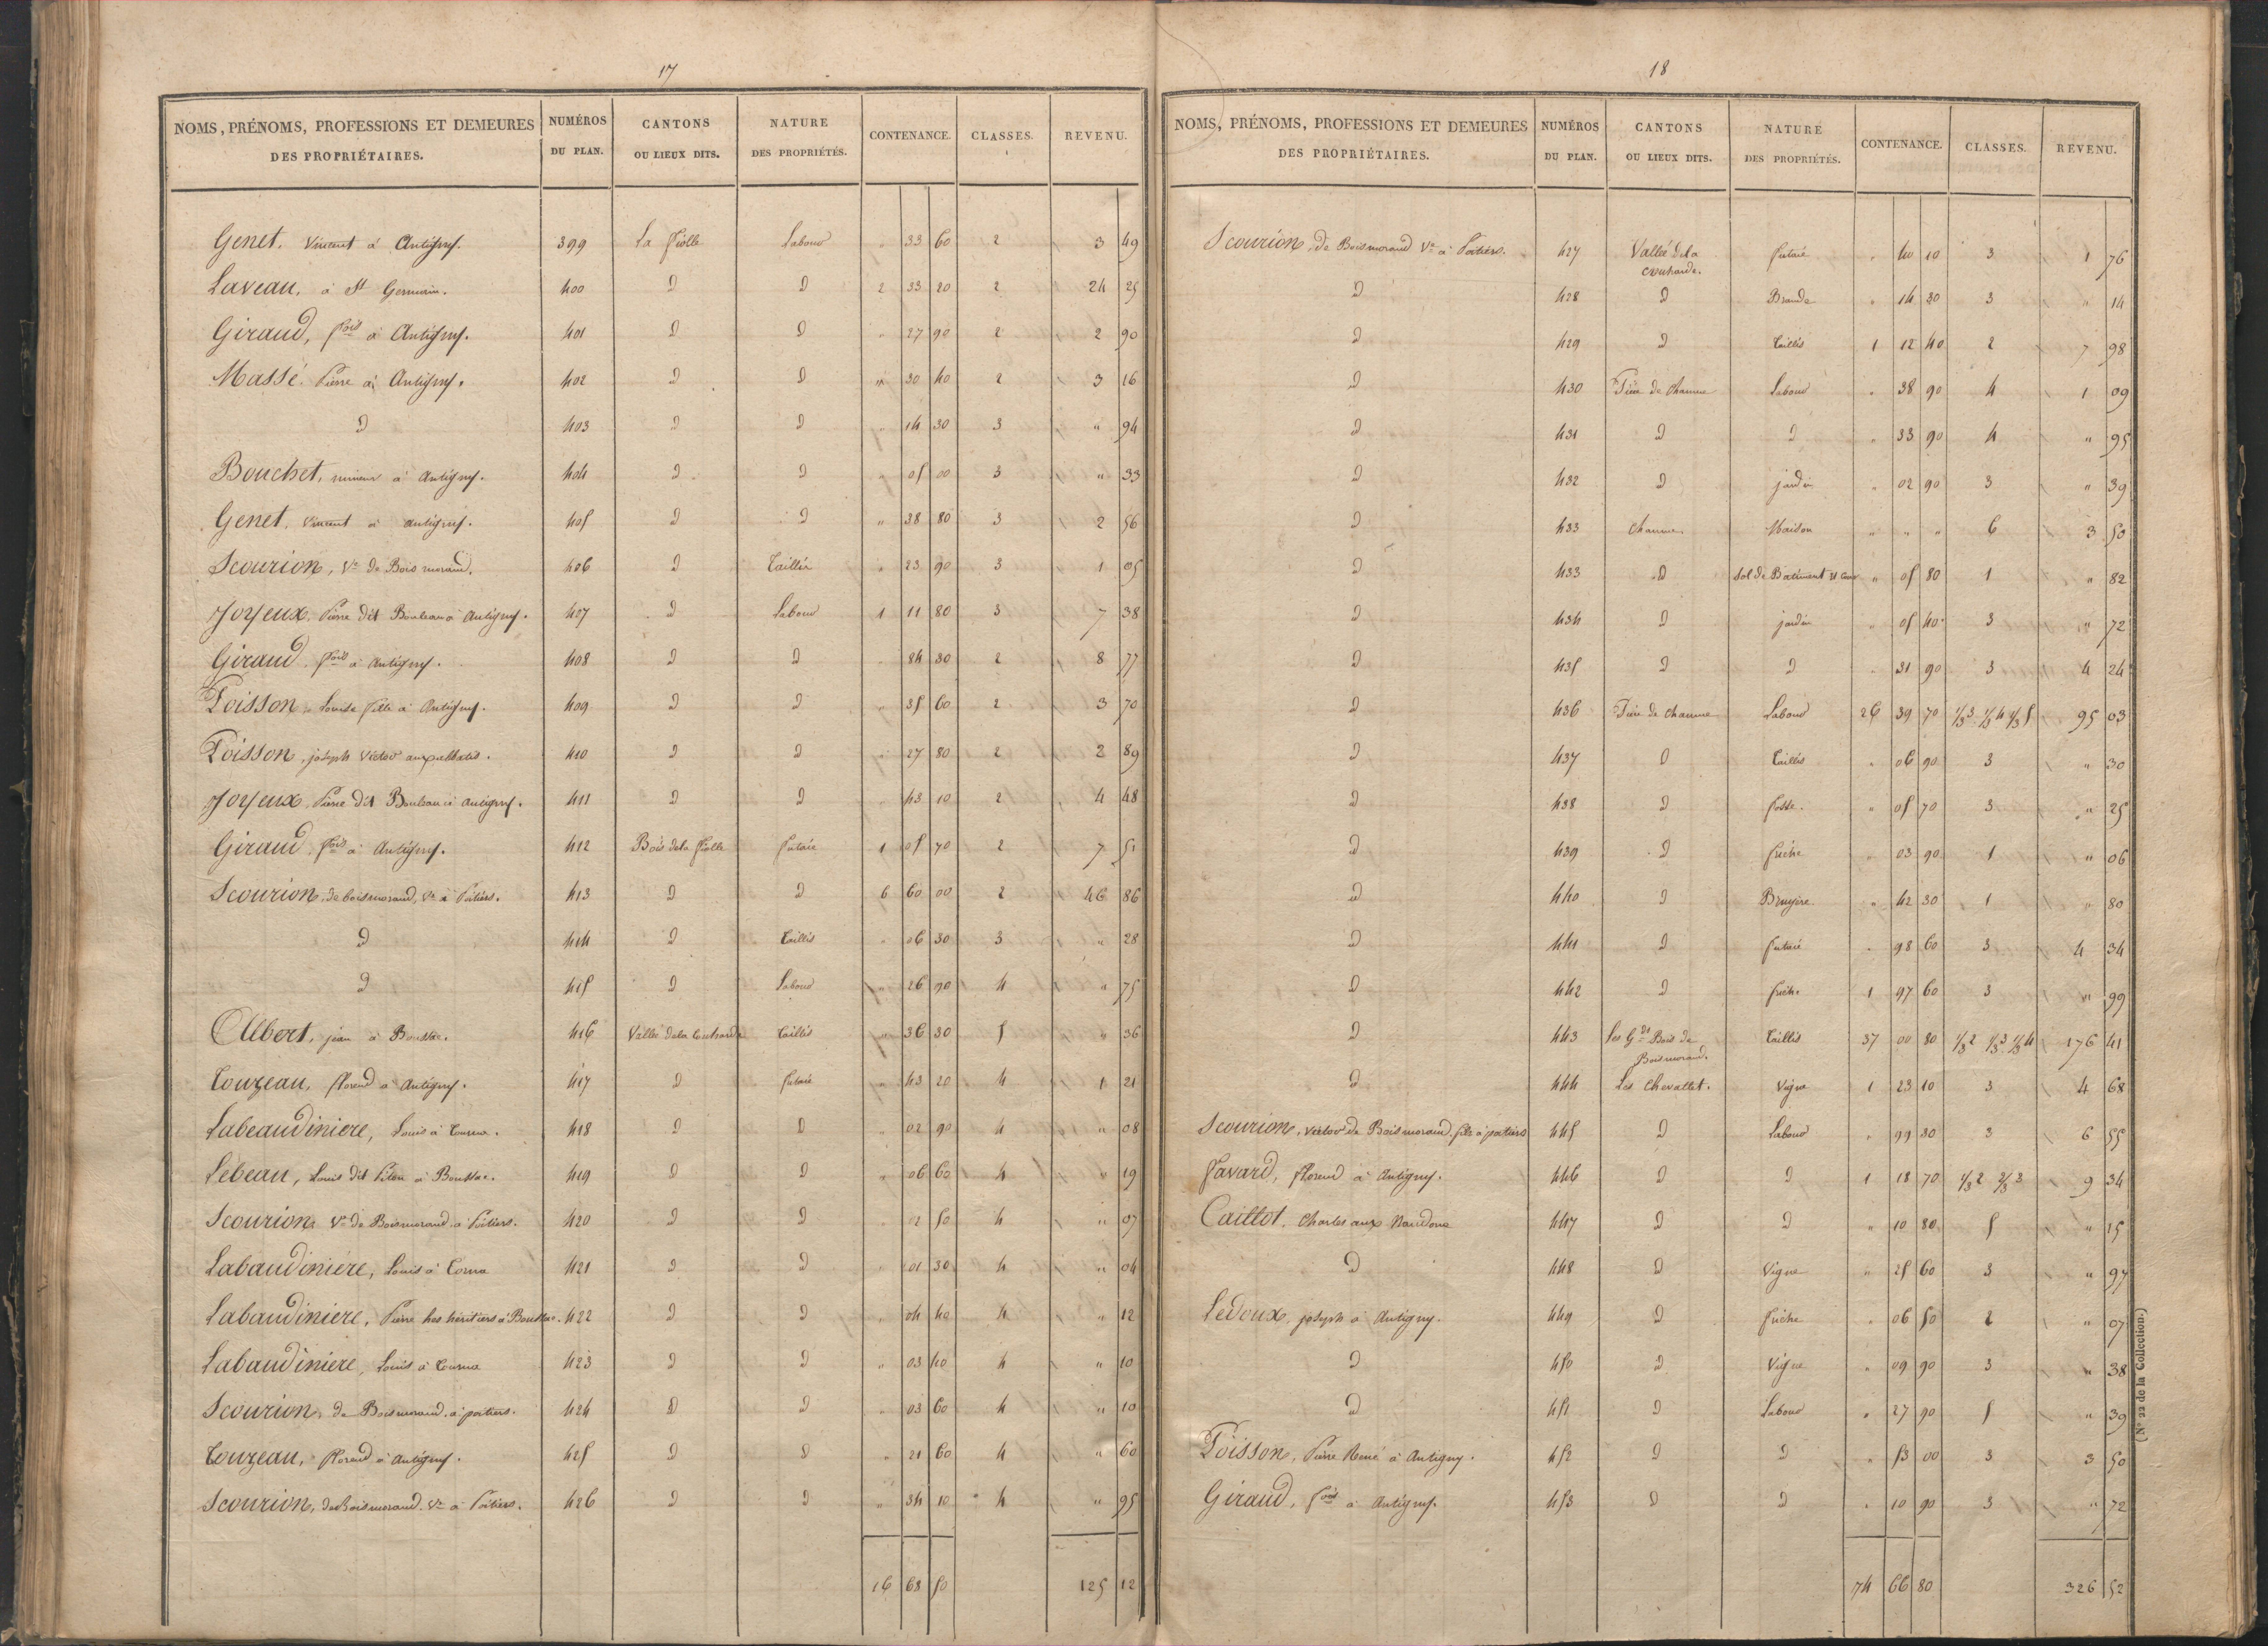 17
NOMS, PRÉNOMS, PROFESSIONS ET DEMEURES DES PROPRIÉTAIRES. NUMÉROS DU PLAN. CANTONS OU LIEUX DITS. NATURE DES PROPRIÉTÉS. CONTENANCE. CLASSES. REVENU.
Genet, Vincent à Antigny. 399 La Fiolle Labour " 33 60 2 3 49
Laveau, à St Germain. 400 D D 2 33 20 2 24 25
Giraud, fois à Antigny. 401 D D " 27 90 2 2 90
Massé. Pierre à Antigny. 402 D D " 30 40 2 3 16
D 403 D D " 14 30 3 " 94
Bouchet, mineur à Antigny. 404 D D " 05 00 3 " 33
Genet, Vincent à antigny. 405 D D " 38 80 3 2 56
Scourion, Ve de Bois morand. 406 D Taillis " 23 90 3 1 05
Joyeux. Pierre dit Bouleau à Antigny. 407 D Labour 1 11 80 3 7 38
Giraud fois à antigny. 408 D D " 84 30 2 8 77
Poisson, Louise fille à Antigny. 409 D D " 35 60 2 3 70
Poisson, joseph Victor 410 D D " 27 80 2 2 89
Joyeux. Pierre dit Bouleau à antigny. 411 D D " 43 10 2 4 48
Giraud, fois à Antigny. 412 Bois dela fiolle futaie 1 05 70 2 7 51
Scourion, de boismorand, Ve à Poitiers. 413 D D 6 60 00 2 46 86
D 414 D Taillis " 06 30 3 " 28
D 415 D Labour " 26 90 4 " 75
Albert, jean à Boussac. 416 Vallée dela Taillis " 36 30 5 " 36
Touzeau, florend à Antigny. 417 D futaie " 43 20 4 1 21
Labeaudiniere, Louis à 418 D D " 02 90 4 " 08
Lebeau, Louis dit à Boussac. 419 D D " 06 60 4 " 19
Scourion, Ve de Boismorand à Poitiers. 420 D D " 02 50 4 " 07
Labaudinière, Louis à 421 D D " 01 30 4 " 04
Labaudiniere, Pierre hes héritiers à Boussac. 422 D D " 04 40 4 " 12
Labaudiniere, Louis à 423 D D " 03 40 4 " 10
Scourion, de Boismorand, à poitiers. 424 D D " 03 60 4 " 10
Touzeau, florend à Antigny. 425 D D " 21 60 4 " 60
Scourion, de Boismorand, Ve à Poitiers. 426 D D " 34 10 4 " 95
16 68 50 125 12
18
NOMS, PRÉNOMS, PROFESSIONS ET DEMEURES DES PROPRIÉTAIRES. NUMÉROS DU PLAN. CANTONS OU LIEUX DITS. NATURE DES PROPRIÉTÉS. CONTENANCE. CLASSES. REVENU.
Scourion, de Boismorand Ve à Poitiers. 427 Vallée dela futaie " 40 10 3 1 76
D 428 D Brande " 14 30 3 " 14
D 429 D Taillis 1 12 40 2 7 98
D 430 de Chaume Labour " 38 90 4 1 09
D 431 D D " 33 90 4 " 95
D 432 D jardin " 02 90 3 " 39
D 433 Chaume Maison " " " 6 3 50
D 433 D Sol de Batiment et Cour " 05 80 1 " 82
D 434 D jardin " 05 40 3 " 72
D 435 D D " 31 90 3 4 24
D 436 de Chaume Labour 26 39 70 1/3 3 1/3 4 1/3 5 95 03
D 437 D Taillis " 06 90 3 " 30
D 438 D fosse. " 05 70 3 " 25
D 439 D friche " 03 90 1 " 06
D 440 D Bruyère " 42 30 1 " 80
D 441 D futaie " 98 60 3 4 34
D 442 D friche 1 97 60 3 " 99
D 443 Les Gds Bois de Boismorand. Taillis 37 00 80 1/3 2 1/3 3 1/3 4 176 41
D 444 Les Chevallet. Vigne 1 23 10 3 4 68
Scourion, Victor de Boismorand fils à poitiers 445 D Labour " 99 30 3 6 55
Favard, florend à Antigny. 446 D D 1 18 70 1/3 2 2/3 3 9 34
Caillot, Charles aux 447 D D " 10 80 5 " 15
D 448 D Vigne " 25 60 3 " 97
Ledoux, joseph à Antigny. 449 D friche " 06 50 2 " 07
D 450 D Vigne " 09 90 3 " 38
D 451 D Labour " 27 90 5 " 39
Poisson, Pierre René à Antigny. 452 D D " 53 00 3 3 50
Giraud, fois à Antigny. 453 D D " 10 90 3 " 72
74 66 80 326 52
(N° 22 de la Collection.)